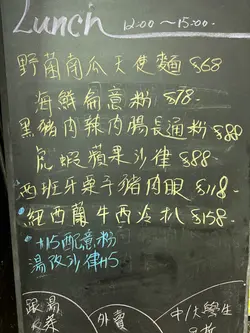 Lunch 12:00 ~ 15:00.
野菌南瓜天使麵 $68
海鮮扁意粉 $78.
黑豬肉辣肉腸長通粉 $88
虎蝦蘋果沙律 $88.
西班牙栗子豬肉眼 $118.
紐西蘭牛西冷扒 $158.
+15配意粉
湯改沙律+15
跟湯
外賣
中/大學生